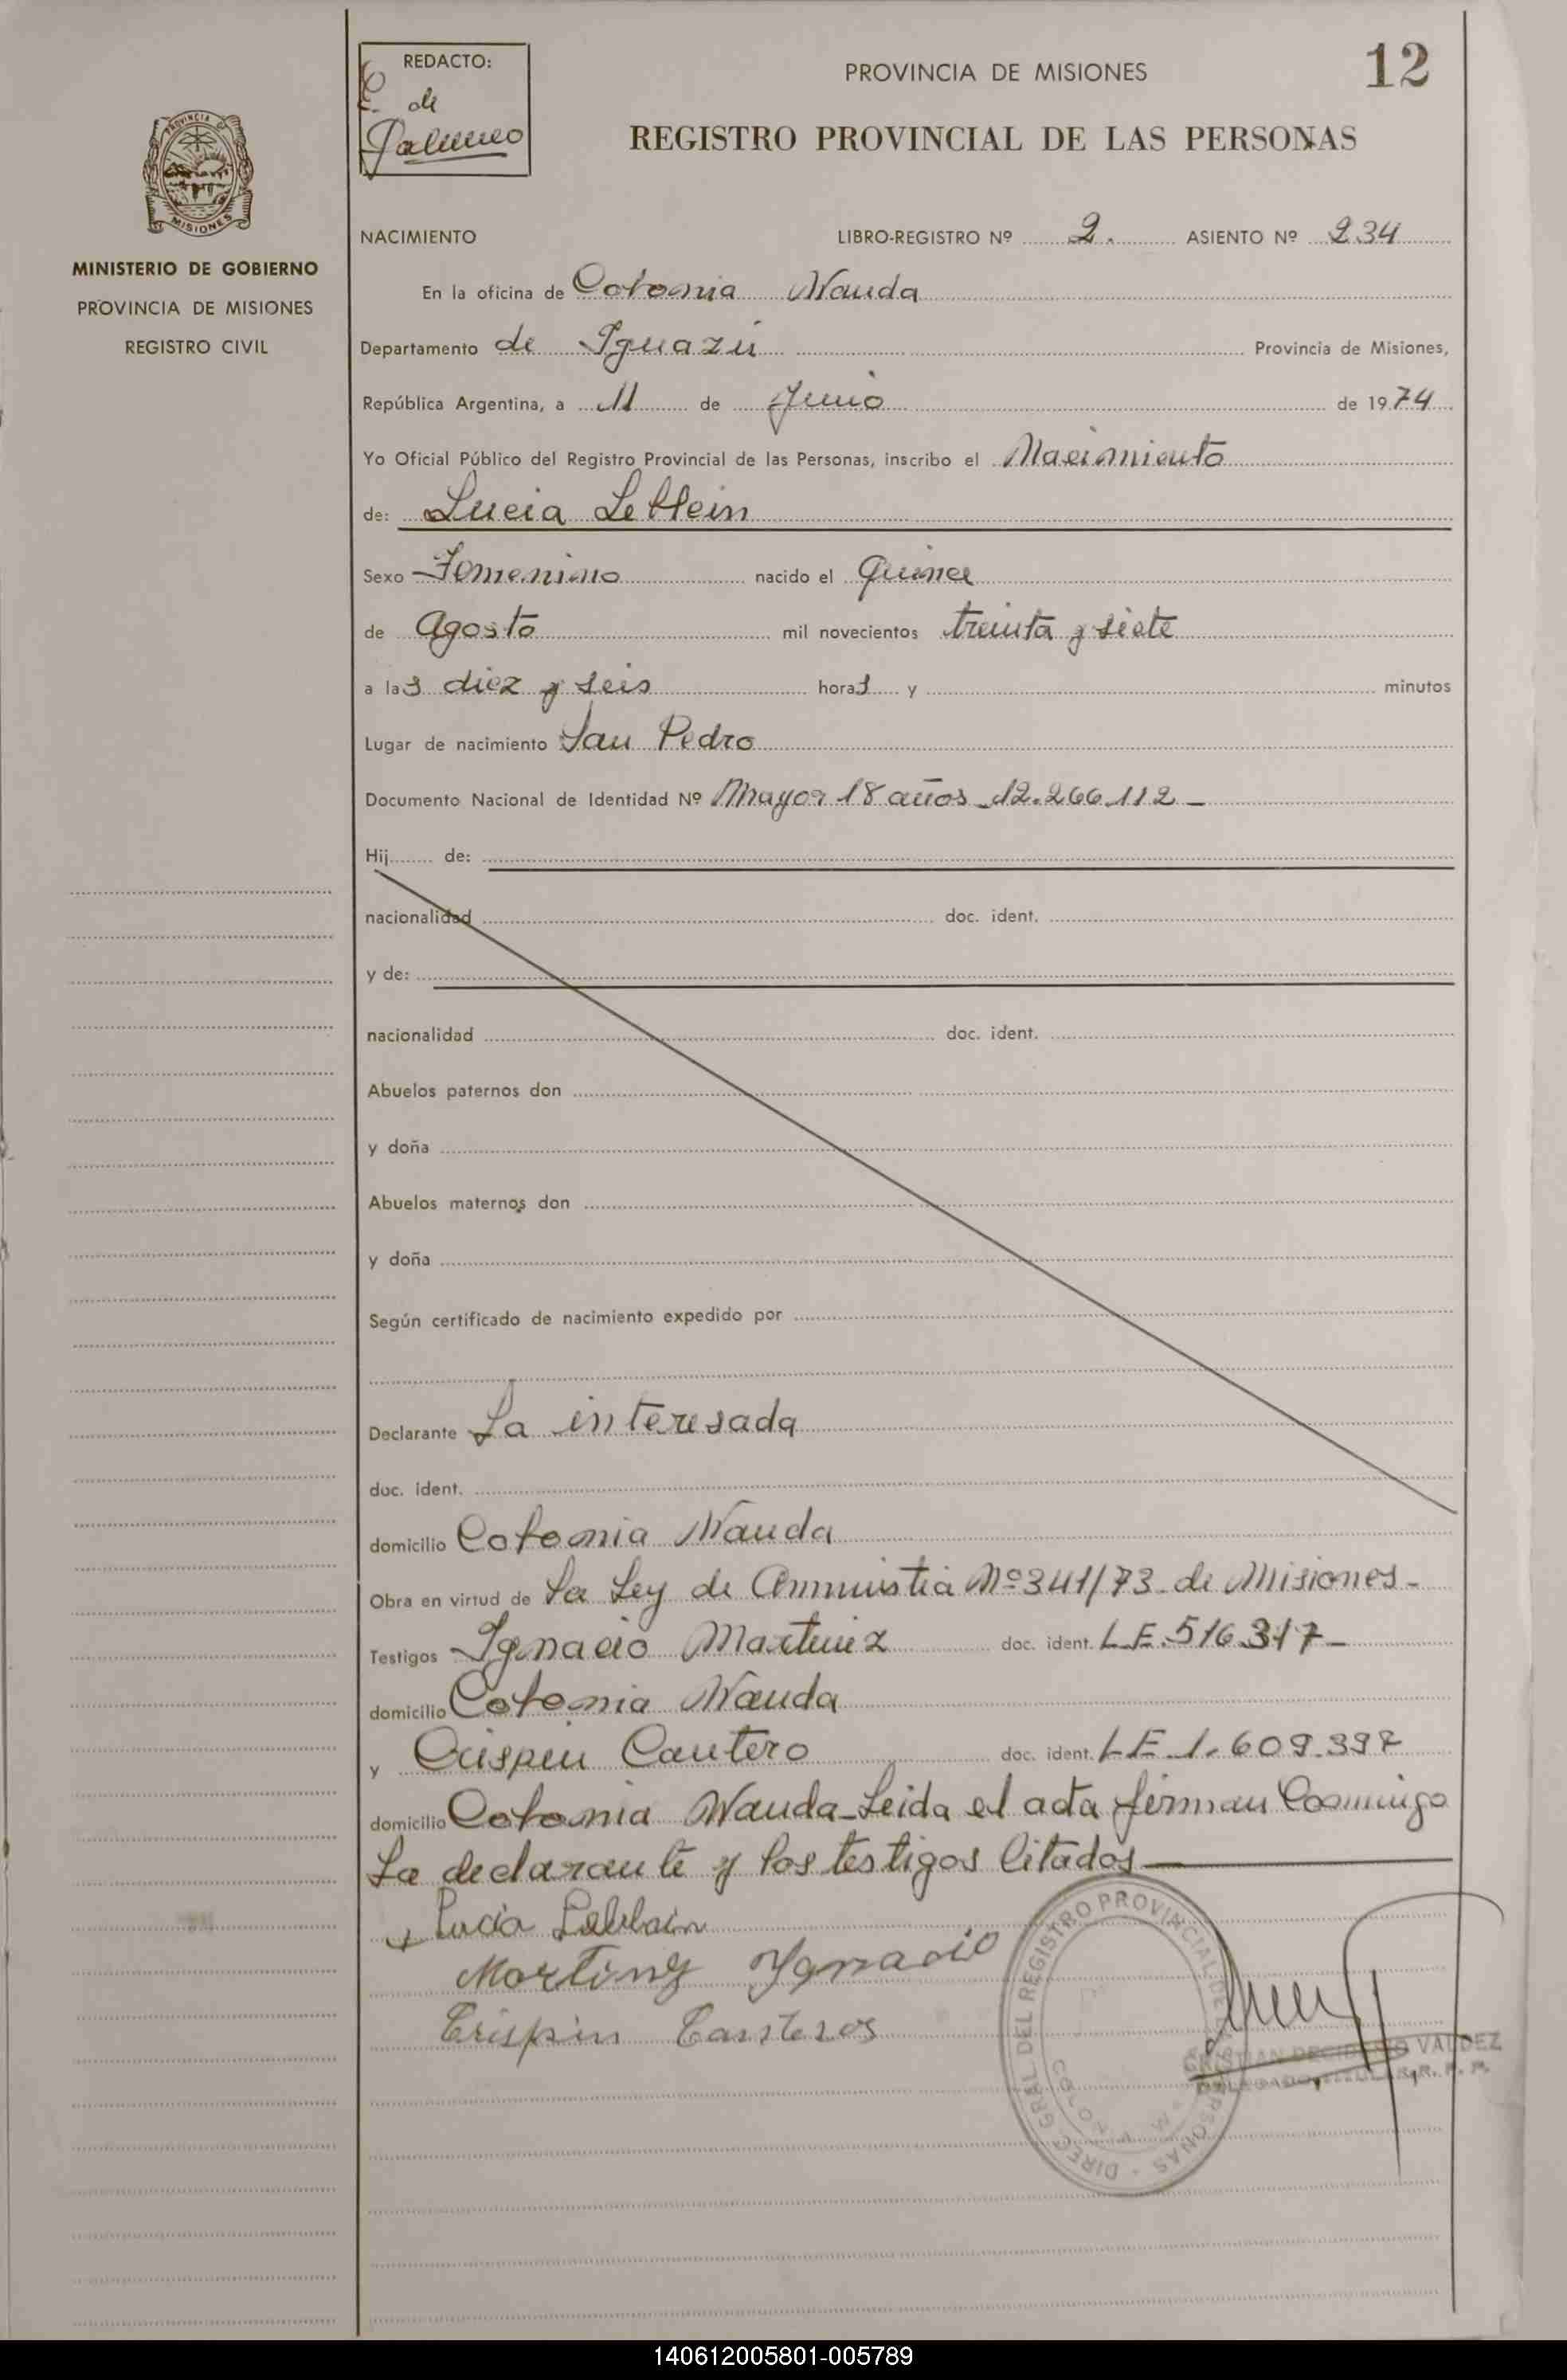 12
REDACTO:
E. de
PROVINCIA DE MISIONES
REGISTRO PROVINCIAL DE LAS PERSONAS
PROVINCIA DE
MISIONES
MINISTERIO DE GOBIERNO
PROVINCIA DE MISIONES
REGISTRO CIVIL
NACIMIENTO LIBRO-REGISTRO Nº 2. ASIENTO Nº 234
En la oficina de Colonia Wanda
Departamento de Iguazú Provincia de Misiones,
República Argentina, a 11 de Junio de 1974
Yo Oficial Público del Registro Provincial de las Personas, inscribo el Nacimiento
de: Lucia Leblein
Sexo Femenino nacido el Quince
de Agosto mil novecientos treinta y siete
a las diez y seis horas y minutos
Lugar de nacimiento San Pedro
Documento Nacional de Identidad Nº Mayor 18 años - 12.266.112 -
Hij de:
nacionalidad doc. ident.
y de:
nacionalidad doc. ident.
Abuelos paternos don
y doña
Abuelos maternos don
y doña
Según certificado de nacimiento expedido por
Declarante La interesada
doc. ident.
domicilio Colonia Wanda
Obra en virtud de La Ley de Amnistia Nº 341/73 - de Misiones -
Testigos Ignacio Martinez doc. ident. LE. 516.317 -
domicilio Colonia Wanda
y Crispin Cantero doc. ident. LE 1.609.397
domicilio Colonia Wanda - Leida el acta firman Conmigo
La declarante y los testigos Citados
Lucia
Martinez Ygnacio
Crispin Canteros
DIREC. GRAL DEL REGISTRO PROVINCIAL DE LAS PERSONAS
CRISTIAN VALDEZ
DELEGADO TITULAR R. P. P.
140612005801-005789